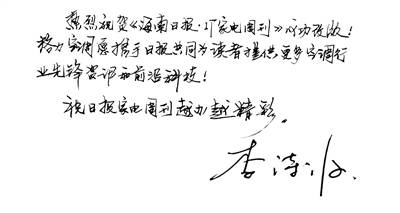 热烈祝贺《海南日报·IT家电周刊》成功改版!
格力空调愿携手日报共同为读者提供更多空调行
业先锋资讯和前沿科技!
祝日报家电周刊越办越精彩。
李